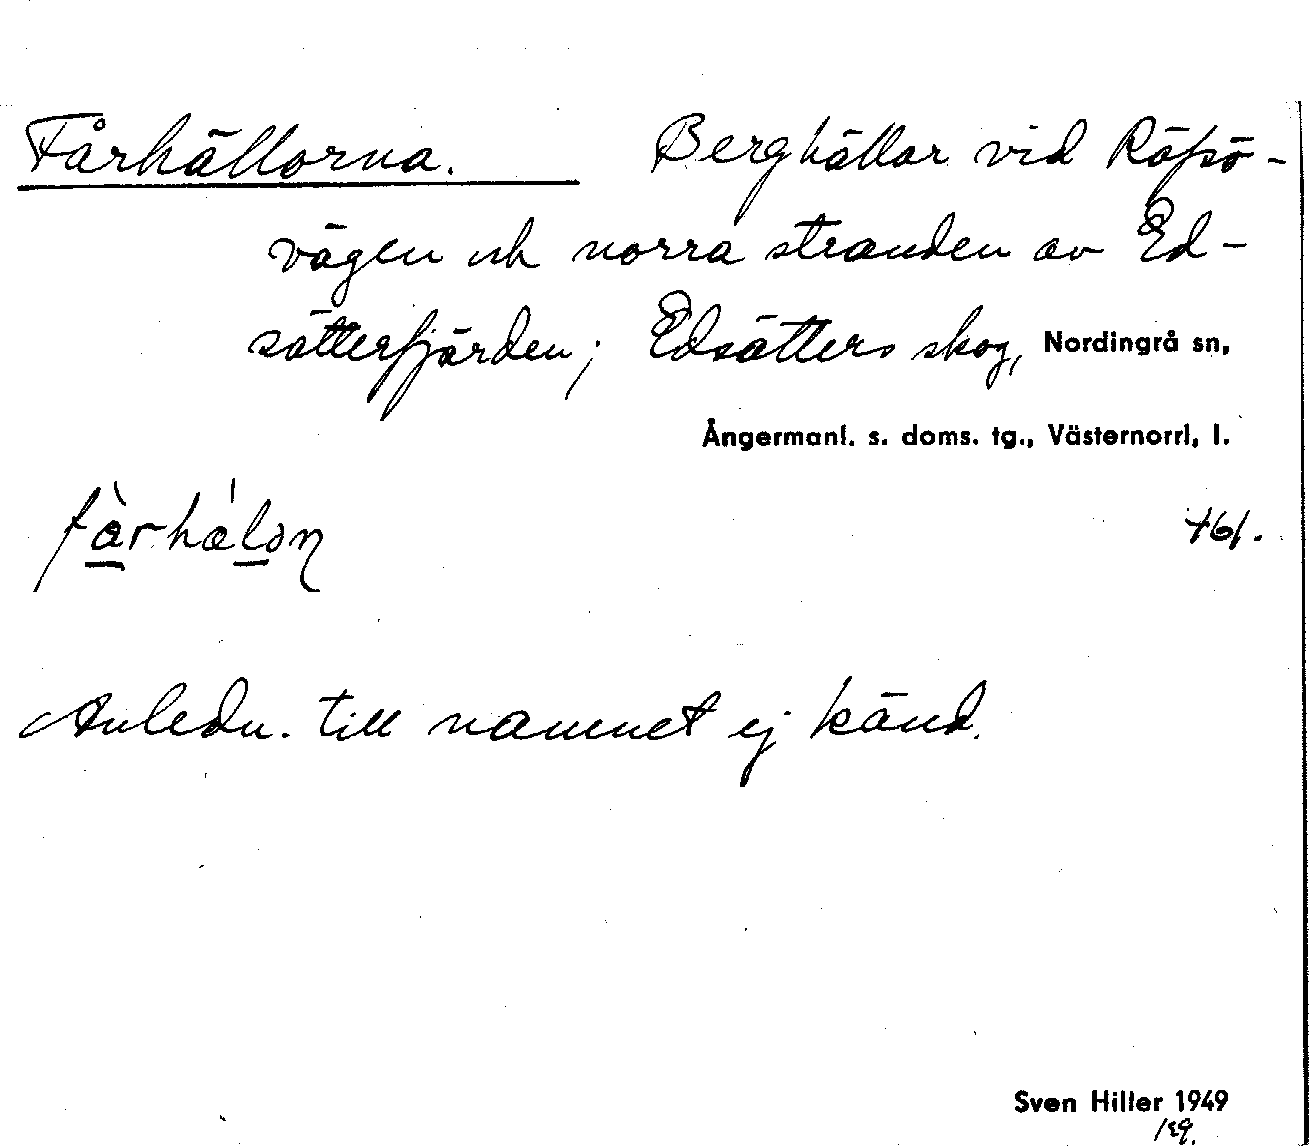 Fårhällorna. Berghällar vid Röksö-
vägen och norra stranden av Ed-
sätterfjärden; Edsätters skog, Nordingrå sn,
Ångermanl. s. doms. tg., Västernorrl, l.
461.
Anledn. till namnet ej känd.
Sven Hiller 1949